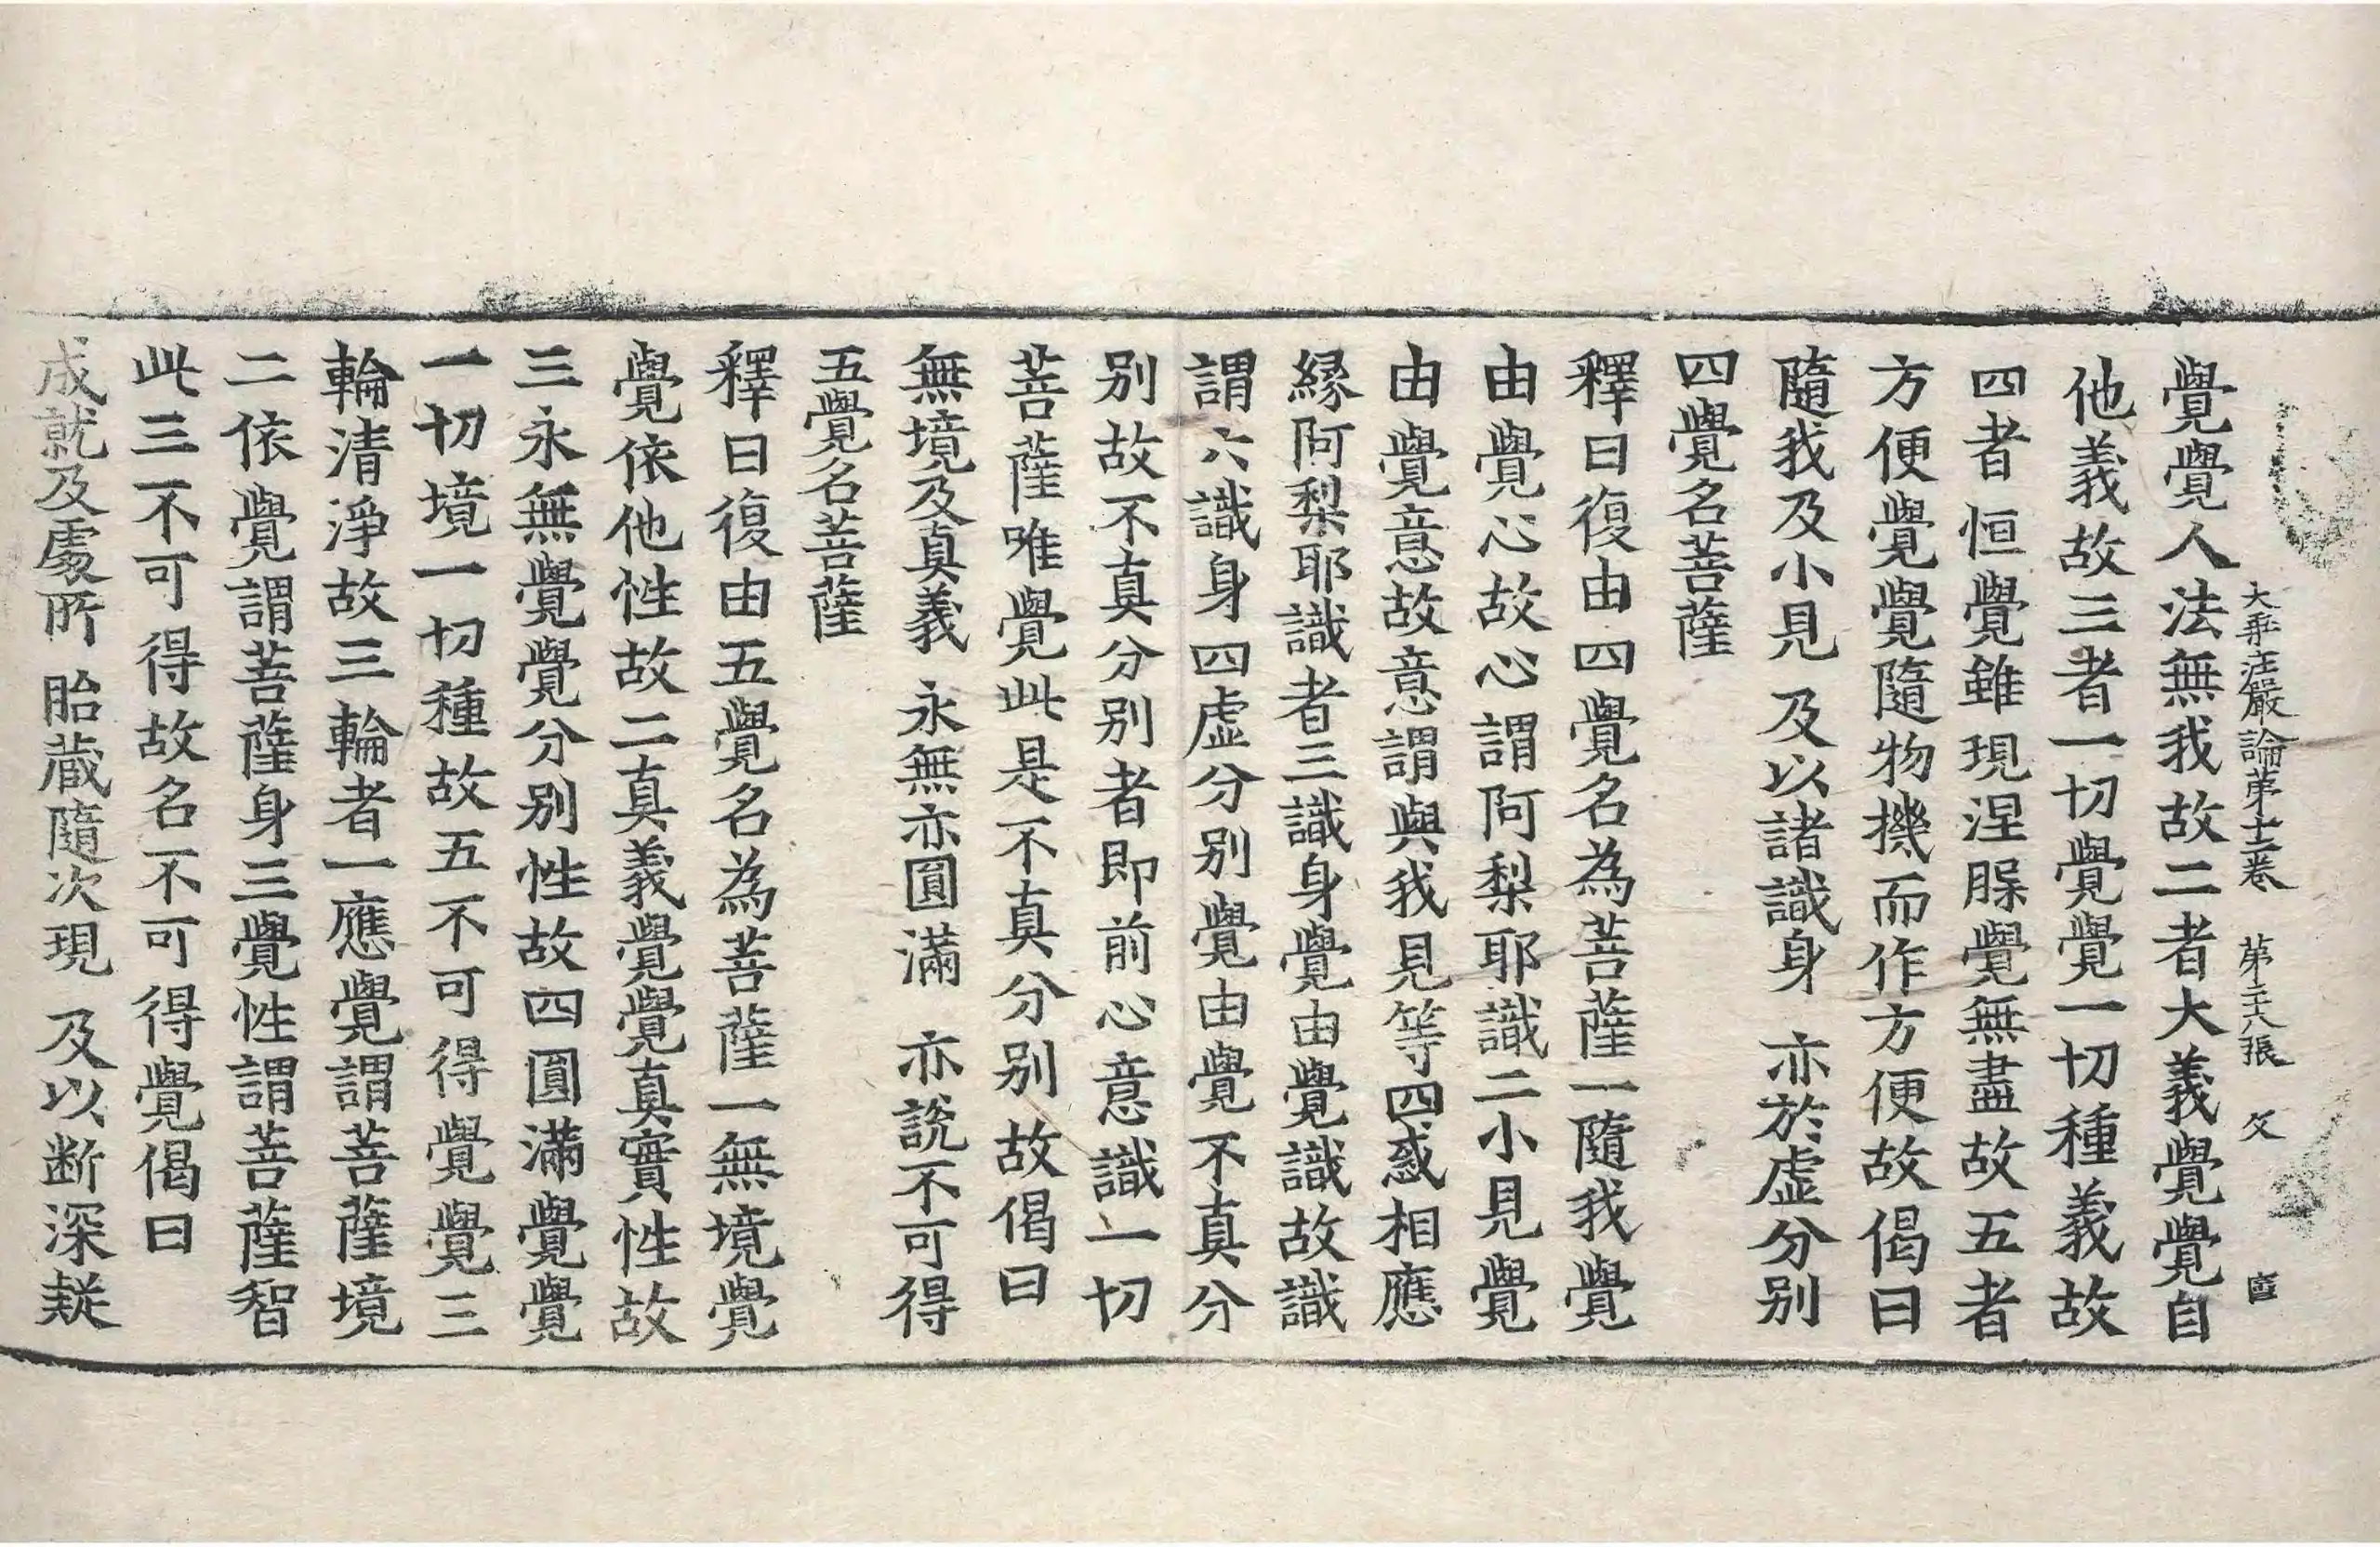 大乗荘嚴論第十二卷 第二十八張 父
覺覺人法無我故二者大義覺覺自
他義故三者一切覺覺一切種義故
四者恒覺雖現涅槃覺無盡故五者
方便覺覺隨物機而作方便故偈曰
隨我及小見 及以諸識身 亦於虛分別
四覺名菩薩
釋曰復由四覺名為菩薩一隨我覺
由覺心故心謂阿梨耶識二小見覺
由覺意故意謂與我見等四惑相應
緣阿梨耶識者三識身覺由覺識故識
謂六識身四虛分別覺由覺不真分
別故不真分別者即前心意識一切
菩薩唯覺此是不真分別故偈曰
無境及真義 永無亦圓滿 亦說不可得
五覺名菩薩
釋曰復由五覺名為菩薩一無境覺
覺依他性故二真義覺覺真實性故
三永無覺覺分別性故四圓滿覺覺
一切境一切種故五不可得覺覺三
輪清淨故三輪者一應覺謂菩薩境
二依覺謂菩薩身三覺性謂菩薩智
此三不可得故名不可得覺偈曰
成就及處所 胎蔵隨次現 及以断深疑